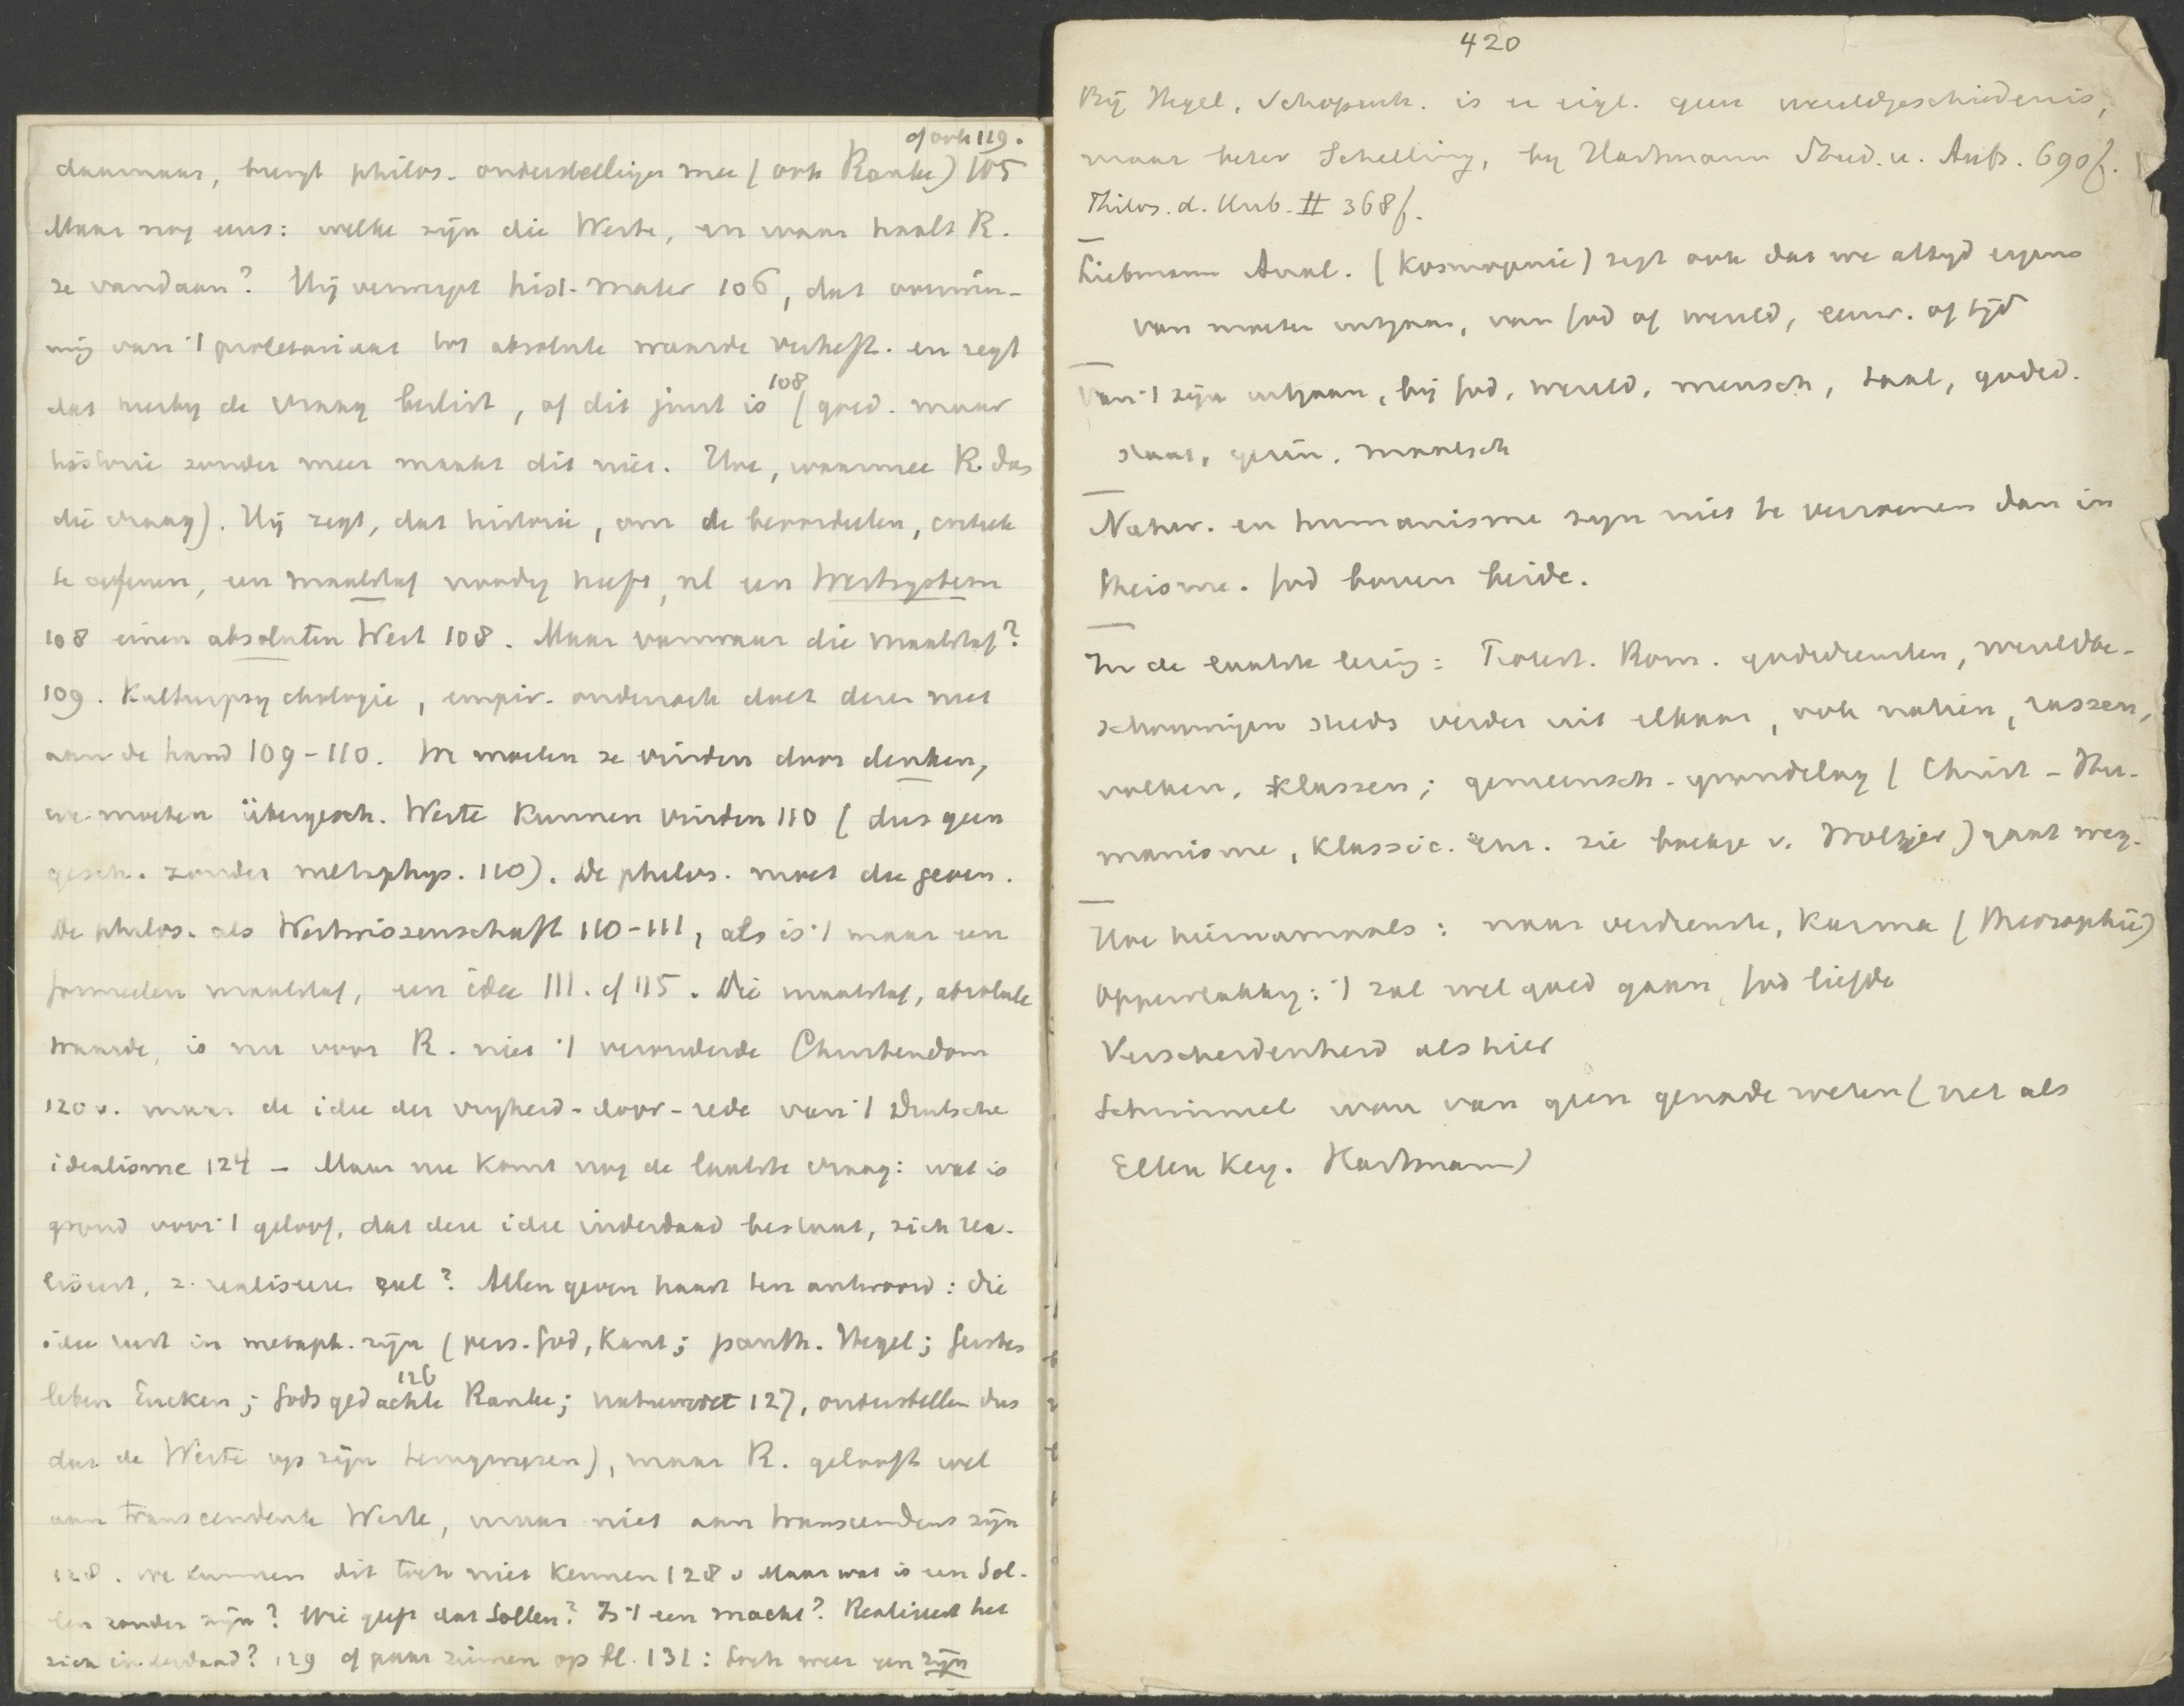 cf ook 119.
daarnaar, brengt philos. onderstellingen mee (ook Ranke) 105
Maar nog eens: welke zijn die Werte, en waar haalt R.
ze vandaan? Hij verwerpt hist-mater 106, dat overwin-
ning van 't proletariaat tot absolute waarde verheft. en zegt
dat hierby de vraag beslist, of dit juist is 108 (goed. maar
historie zonder meer maakt dit niet. Hoe, waarmee R. dan
die vraag). Hij zegt, dat historie, om te beoordeelen, critiek
te oefenen, een maatstaf noodig heeft, nl een Wertsystem
108 einen absoluten Wert 108. Maar vanwaar die maatstaf?
109. Kulturpsychologie, empir. onderzoek doet deze niet
aan de hand 109-110. We moeten ze vinden door denken,
we moeten übergesch. Werte kunnen vinden 110 (dus geen
gesch. zonder metaphys. 110). De philos. moet die geven.
De philos. als Wertwissenschaft 110-111, al is 't maar een
formeelen maatstaf, een idee 111. cf 115. Die maatstaf, absolute
waarde, is nu voor R. niet 't verouderde Christendom
120 v. maar de idee der vryheid-door-rede van 't Duitsche
idealisme 124 - Maar nu komt nog de laatste vraag: wat is
grond voor 't geloof, dat deze idee inderdaad bestaat, zich rea-
liseert, z. realiseeren zal? Allen geven haast ten antwoord: die
idee rust in metaph. zijn (pers. God, Kant; panth. Hegel; Geistes
leben Eucken; Gods gedachte 126 Ranke; natuurwet 127, onderstellen dus
dat de Werte op zijn teruggrypen), maar R. gelooft wel
aan transcendente Werte, maar niet aan transcendent zijn
128. we kunnen dit toch niet kennen 128 v Maar wat is een Sol-
len zonder zijn? Wie geeft dat Sollen? Is 't een macht? Realiseert het
zich inderdaad? 129 cf paar zinnen op bl. 131: toch weer een zijn
420
Bij Hegel, Schopenh. is er eigl. geen wereldgeschiedenis,
maar beter Schelling, by Hartmann Stud. u. Aufs. 690f.
Philos. d. Unb. II 368f.
Liebmann Anal. (Kosmogonie) zegt ook dat we altyd ergens
van moeten uitgaan, van God of wereld, eeuw. of tijd
Van 't zijn uitgaan, bij God, wereld, mensch, taal, godsd.
staat, gezin, maatsch
Natur. en humanisme zijn niet te verzoenen dan in
theisme. God boven beide.
In de laatste eeuw: Protest. Rom. godsdiensten, wereldbe-
schouwingen steeds verder uit elkaar, ook natiën, rassen,
volken, klassen; gemeensch. grondslag (Christ - Hu-
manisme, Klassic. enz. zie boekje v. Woltjer) gaat weg.
Hoe hiernamaals: naar verdienste, Karma (Theosophie)
Oppervlakkig: 't zal wel goed gaan, God liefde
Verscheidenheid als hier
Schimmel wou van geen genade weten (net als
Ellen Key. Hartmann)